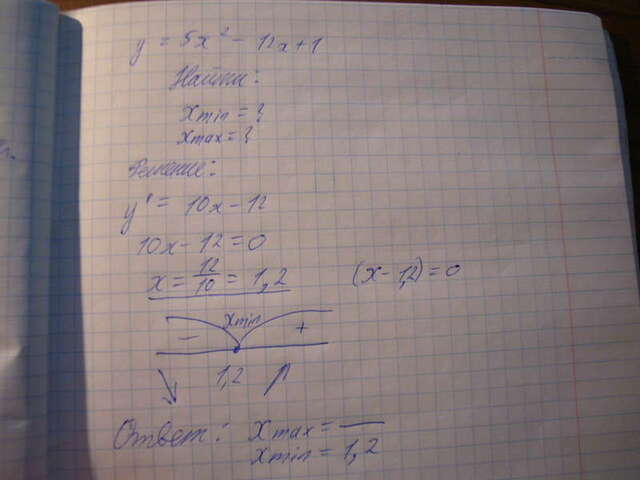 y = 5x² - 12x + 1
Найти:
xmin = ?
xmax = ?
Решение:
y' = 10x - 12
10x - 12 = 0
x = 12/10 = 1,2 (x - 1,2) = 0
xmin
- +
1,2
Ответ: xmax = —
xmin = 1,2